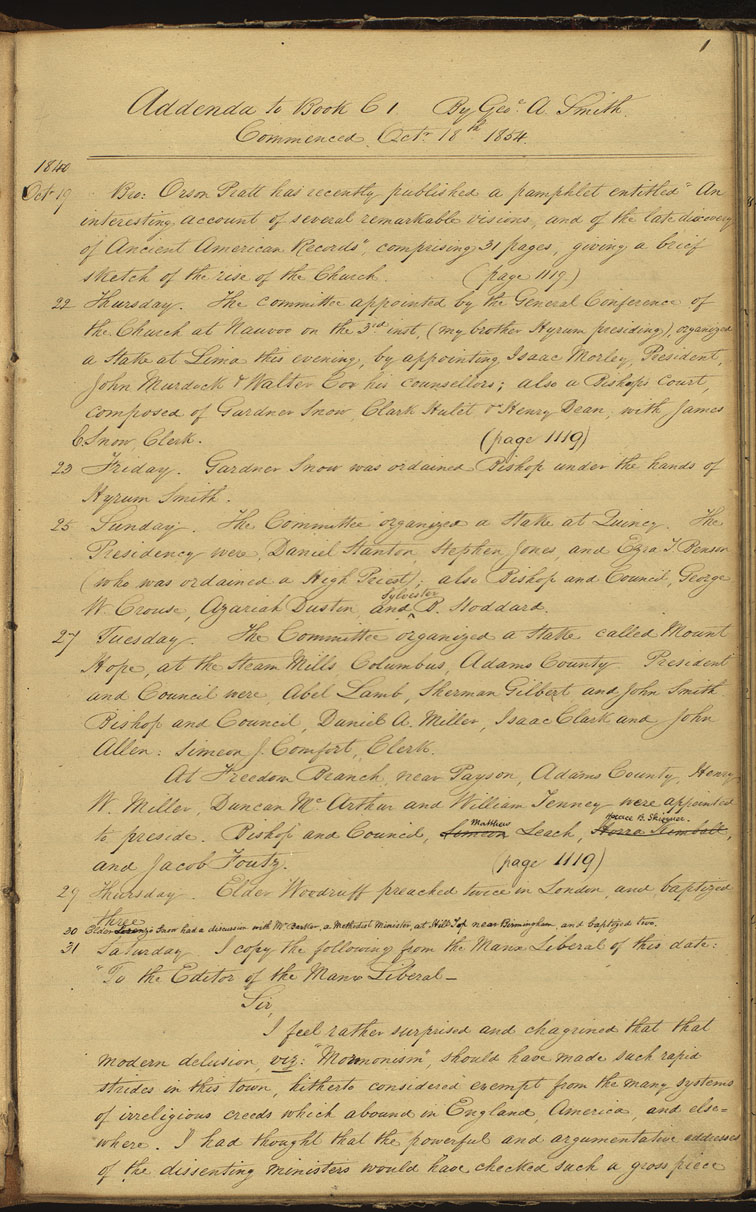 1
Addenda to Book C 1. By Geo. A. Smith.
Commenced Octr. 18th 1854.
1840
Oct. 19 Bro: Orson Pratt has recently published a pamphlet entitled "An
interesting account of several remarkable visions, and of the late discovery
of Ancient American Records", comprising 31 pages, giving a brief
sketch of the rise of the Church. (page 1119)
22 Thursday. The committee appointed by the General Conference of
the Church at Nauvoo on the 3rd inst, (my brother Hyrum presiding), organized
a Stake at Lima this evening, by appointing Isaac Morley, President,
John Murdock & Walter Cox his counsellors; also a Bishop's Court,
composed of Gardner Snow, Clark Hulet & Henry Dean, with James
C. Snow, Clerk. (page 1119)
23 Friday. Gardner Snow was ordained Bishop under the hands of
Hyrum Smith.
25 Sunday. The Committee organized a Stake at Quincy. The
Presidency were, Daniel Stanton, Stephen Jones, and Ezra T. Benson
(who was ordained a High Priest); also Bishop and Council, George
Sylvester
W. Crouse, Azariah Dusten, and ^ B. Stoddard.
27 Tuesday. The Committee organized a Stake called Mount
Hope, at the Steam Mills, Columbus, Adams County. President
and Council were, Abel Lamb, Sherman Gilbert and John Smith
Bishop and Council, Daniel A. Miller, Isaac Clark and John
Allen: Simeon J. Comfort, Clerk.
At Freedom Branch, near Payson, Adams County, Henry
W. Miller, Duncan Mc. Arthur and William Tenney were appointed
Matthew Horace B. Skinner.
to preside. Bishop and Council, Simeon Leach, Horra Kimball,
and Jacob Foutz. (page 1119)
29 Thursday. Elder Woodruff preached twice in London, and baptized
three
30 Elder Lorenzo Snow had a discussion with Mr. Barker, a Methodist Minister, at Hill Top near Birmingham, and baptized two.
31 Saturday I copy the following from the Manx Liberal of this date:
"To the Editor of the Manx Liberal—
Sir,
I feel rather surprised and chagrined that that
modern delusion, viz: "Mormonism", should have made such rapid
strides in this town, hitherto considered exempt from the many systems
of irreligious creeds which abound in England, America, and else=
where. I had thought that the powerful and argumentative addresses
of the dissenting ministers would have checked such a gross piece